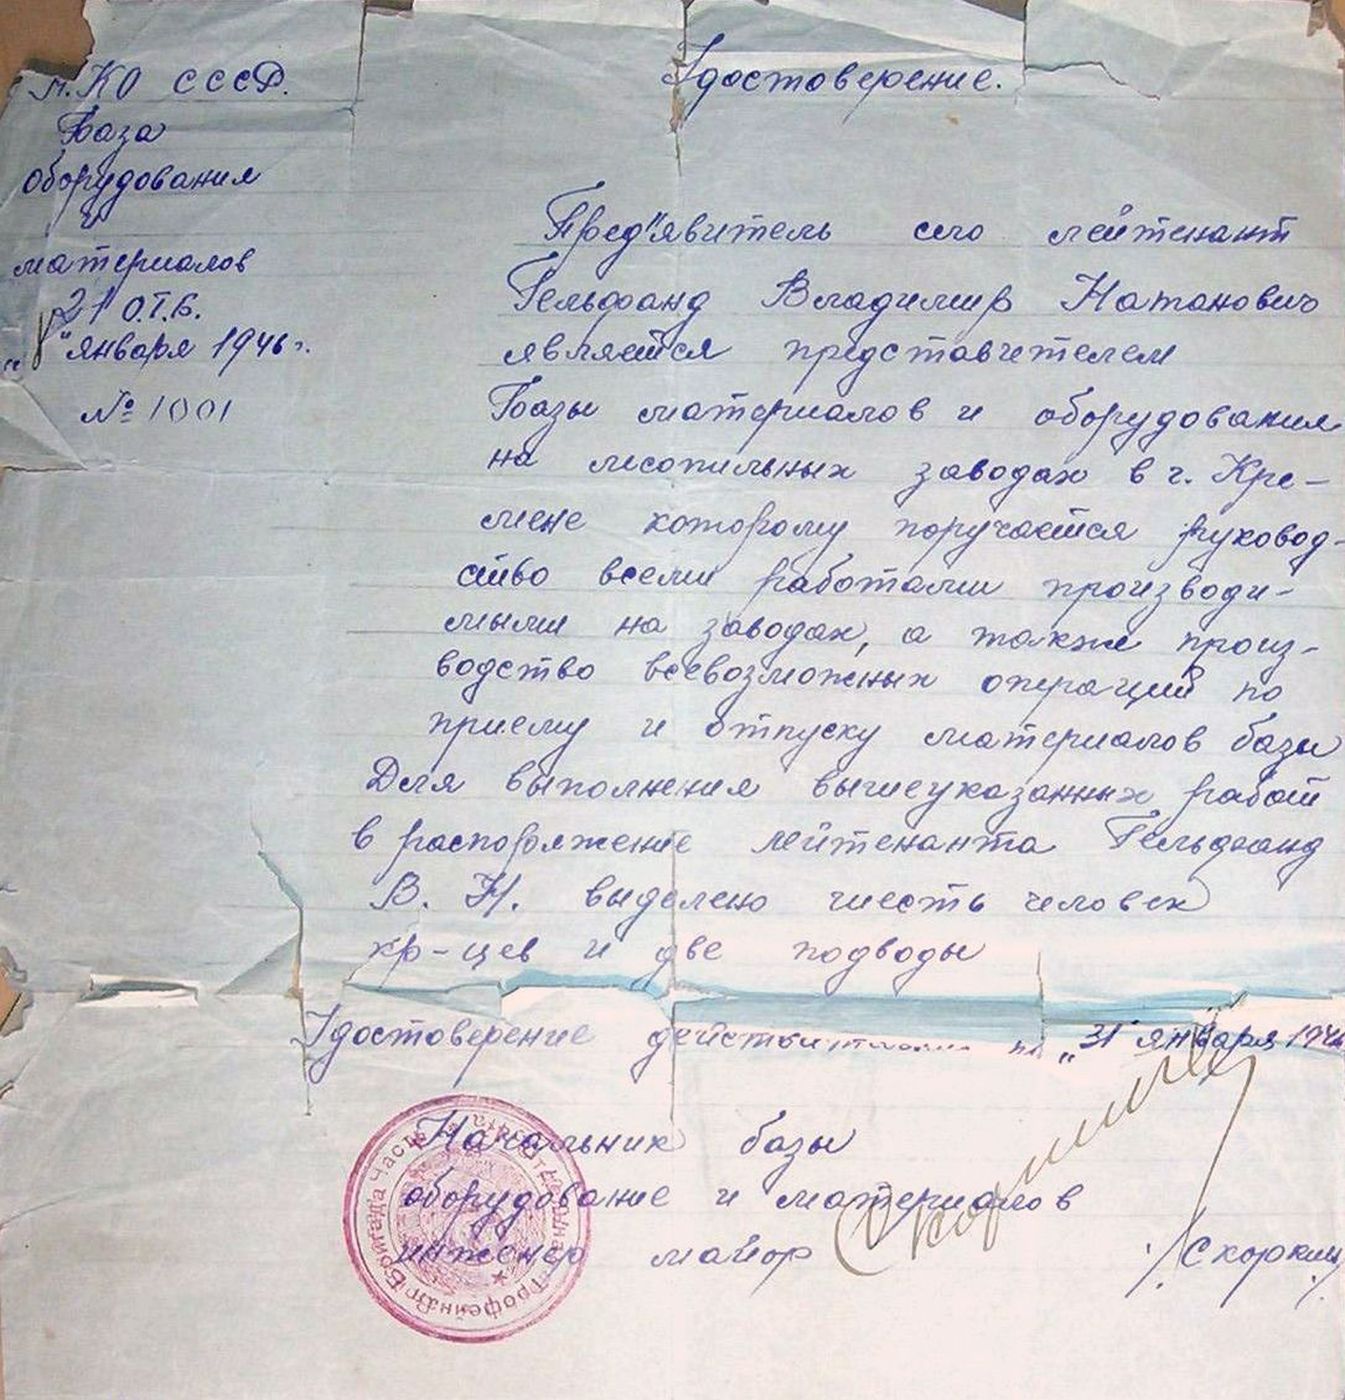 Н.КО СССР.
База
оборудования
и
материалов
21 О.Т.Б.
"8" января 1946 г.
№ 1001
Удостоверение.
Пред"явитель сего лейтенант
Гельфанд Владимир Натанович
является представителем
Базы материалов и оборудования
на лесопильных заводах в г. Кре-
мене которому поручается руковод-
ство всеми работами производи-
мыми на заводах, а также произ-
водство всевозможных операций по
приему и отпуску материалов базы
Для выполнения вышеуказанных работ
в распоряжение лейтенанта Гельфанд
В. Н. выделено шесть человек
кр-цев и две подводы
Удостоверение действительно по "31" января 1946
Начальник базы
оборудование и материалов
инженер майор /Скоркин/
Бригада Часть Отдельная Трофейная